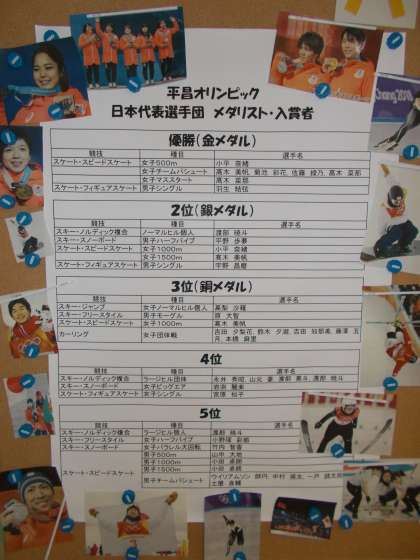 平昌オリンピック
日本代表選手団 メダリスト・入賞者
優勝(金メダル)
競技 種目 選手名
スケート・スピードスケート 女子500m 小平 奈緒
女子チームパシュート 高木 美帆、菊池 彩花、佐藤 綾乃、高木 菜那
女子マススタート 高木 菜那
スケート・フィギュアスケート 男子シングル 羽生 結弦
2位(銀メダル)
競技 種目 選手名
スキー・ノルディック複合 ノーマルヒル個人 渡部 暁斗
スキー・スノーボード 男子ハーフパイプ 平野 歩夢
スケート・スピードスケート 女子1000m 小平 奈緒
女子1500m 高木 美帆
スケート・フィギュアスケート 男子シングル 宇野 昌磨
3位(銅メダル)
競技 種目 選手名
スキー・ジャンプ 女子ノーマルヒル個人 高梨 沙羅
スキー・フリースタイル 男子モーグル 原 大智
スケート・スピードスケート 女子1000m 高木 美帆
カーリング 女子団体戦 吉田 夕梨花、鈴木 夕湖、吉田 知那美、藤澤 五
月、本橋 麻里
4位
競技 種目 選手名
スキー・ノルディック複合 ラージヒル団体 永井 秀昭、山元 豪、渡部 善斗、渡部 暁斗
スキー・スノーボード 女子ビッグエア 岩渕 麗楽
スケート・フィギュアスケート 女子シングル 宮原 知子
5位
競技 種目 選手名
スキー・ノルディック複合 ラージヒル個人 渡部 暁斗
スキー・フリースタイル 女子ハーフパイプ 小野塚 彩那
スキー・スノーボード 女子パラレル大回転 竹内 智香
スケート・スピードスケート 男子500m 山中 大地
男子1000m 小田 卓朗
男子1500m 小田 卓朗
男子チームパシュート ウイリアムソン 師円、中村 奨太、一戸 誠太郎
土屋 良輔